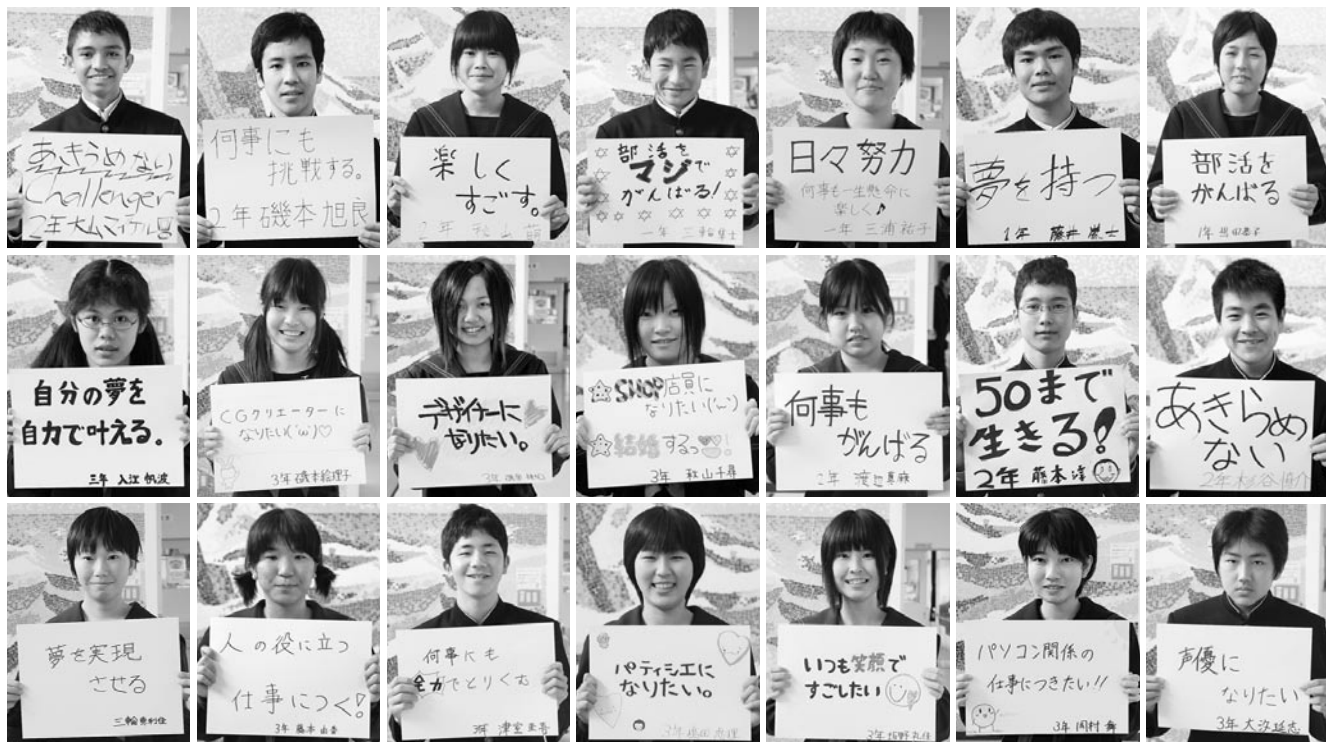 あきらめない
Challenger
2年
何事にも
挑戦する。
2年 磯本旭良
楽しく
すごす。
2年 秋山
部活を
マジで
がんばる!
一年 三輪
日々努力
何事も一生懸命に
楽しく♪
一年 三浦祐子
夢を持つ
1年 藤井
部活を
がんばる
1年
自分の夢を
自力で叶える。
三年 入江 帆波
CGクリエーターに
なりたい('ω')♡
3年 磯本絵理子
デザイナーに
なりたい。
3年
☆SHOP店員に
なりたい('ω')
☆結婚するっ♡!
3年 秋山千尋
何事も
がんばる
2年 渡辺
50まで
生きる!
2年 藤本淳
あきらめ
ない
2年 杉谷
夢を実現
させる
三輪
人の役に立つ
仕事につく!
3年 藤本
何事にも
全力でとりくむ
3年 津室
パティシエに
なりたい。
3年
いつも笑顔で
すごしたい
3年
パソコン関係の
仕事につきたい!!
3年 岡村 舞
声優に
なりたい
3年